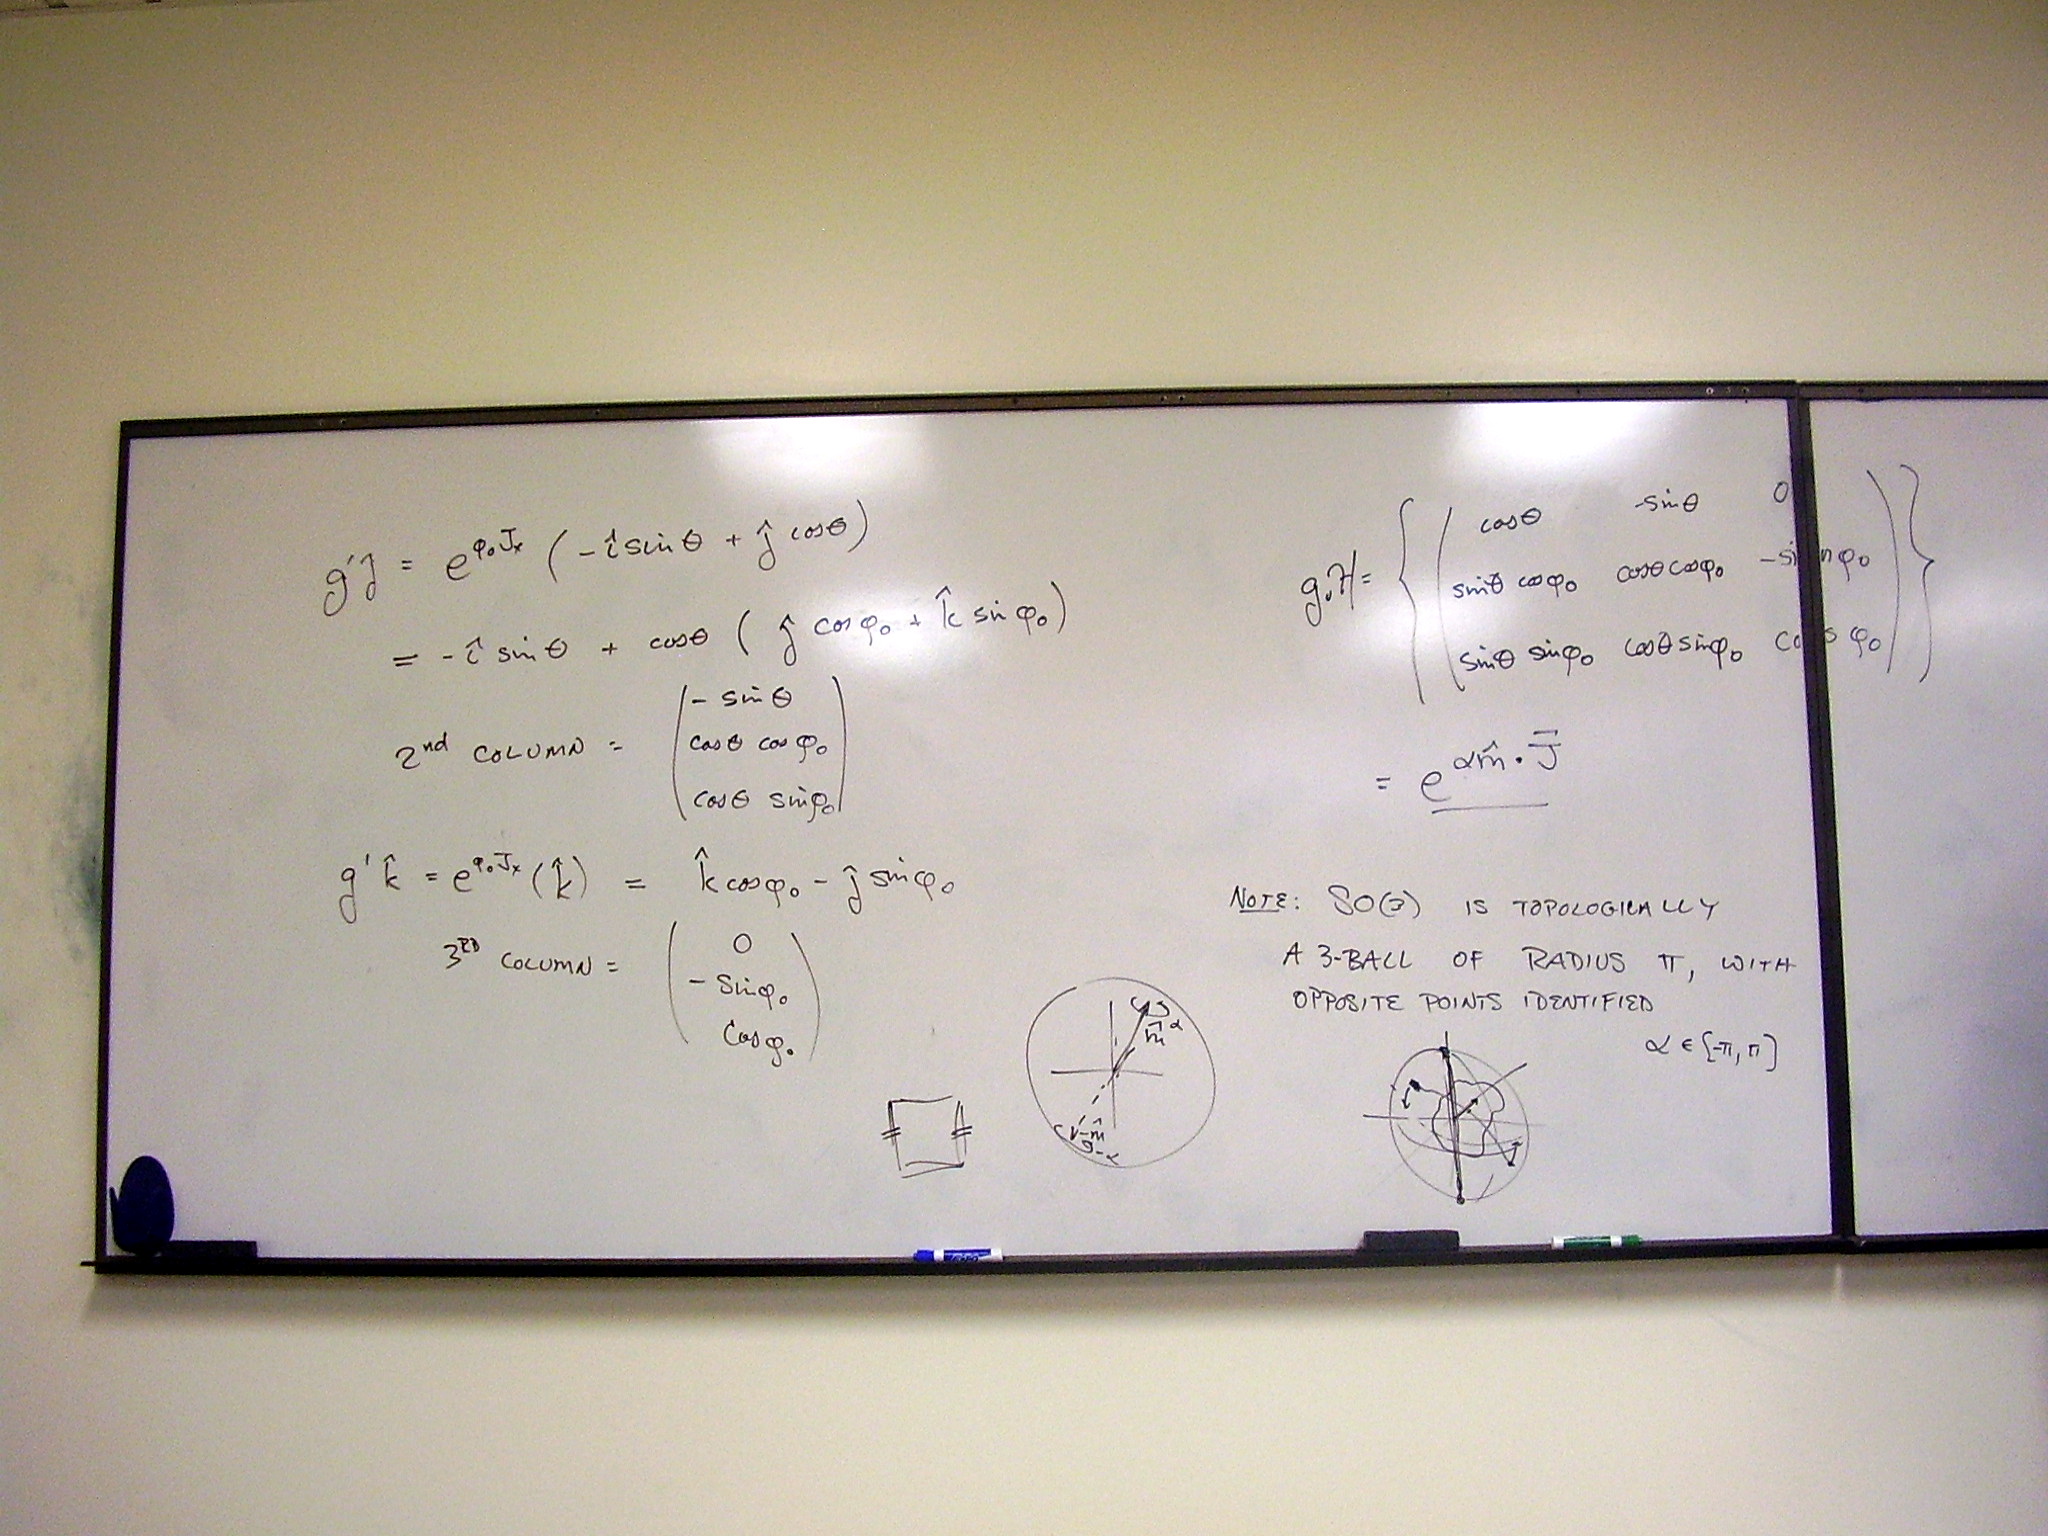 g'ĵ = e^{φ₀Jₓ} (-î sinθ + ĵ cosθ)
= -î sinθ + cosθ ( ĵ cosφ₀ + k̂ sinφ₀)
2nd COLUMN = ( - sinθ
cosθ cosφ₀
cosθ sinφ₀ )
g'k̂ = e^{φ₀Jₓ}(k̂) = k̂ cosφ₀ - ĵ sinφ₀
3RD COLUMN = ( 0
- sinφ₀
cosφ₀ )
m̂ α
-m̂
-α
g₀H = { ( cosθ -sinθ 0
sinθ cosφ₀ cosθ cosφ₀ -sinφ₀
sinθ sinφ₀ cosθ sinφ₀ cosφ₀ ) }
= e^{αm̂ · J̄}
NOTE: SO(3) IS TOPOLOGICALLY
A 3-BALL OF RADIUS π, WITH
OPPOSITE POINTS IDENTIFIED
α ∈ [-π, π]